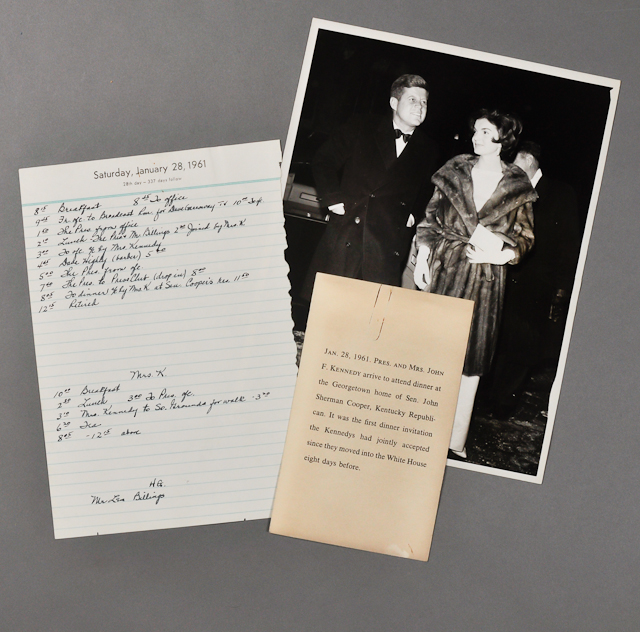 Saturday, January 28, 1961
28th day — 337 days follow
8 Breakfast 8 To office
9 Fr. ofc to Broadcast Rm. for
1 The Pres. from office
2 Lunch The Pres. Mr. Billings 2 Joined by Mrs K
3 To ofc by Mrs Kennedy
4 Dave Highly (barber) 5
5 The Pres. from ofc
7 The Pres. to Press Club (drop in) 8
8 To dinner by Mrs K at Sen. Cooper's res 11
12 Retired
Mrs. K.
10 Breakfast
2 Lunch 3 To Pres. ofc.
3 Mrs. Kennedy to So. Grounds for walk - 3
6 Tea
8 - 12 above
H.G.
Mr. Billings
JAN. 28, 1961. PRES. AND MRS. JOHN
F. KENNEDY arrive to attend dinner at
the Georgetown home of Sen. John
Sherman Cooper, Kentucky Republi-
can. It was the first dinner invitation
the Kennedys had jointly accepted
since they moved into the White House
eight days before.